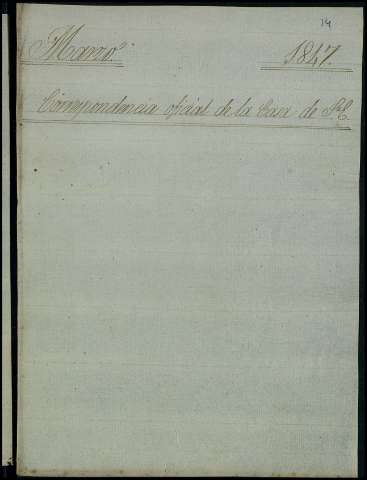 14
Marzo. 1847.
Correspondencia oficial de la Casa de